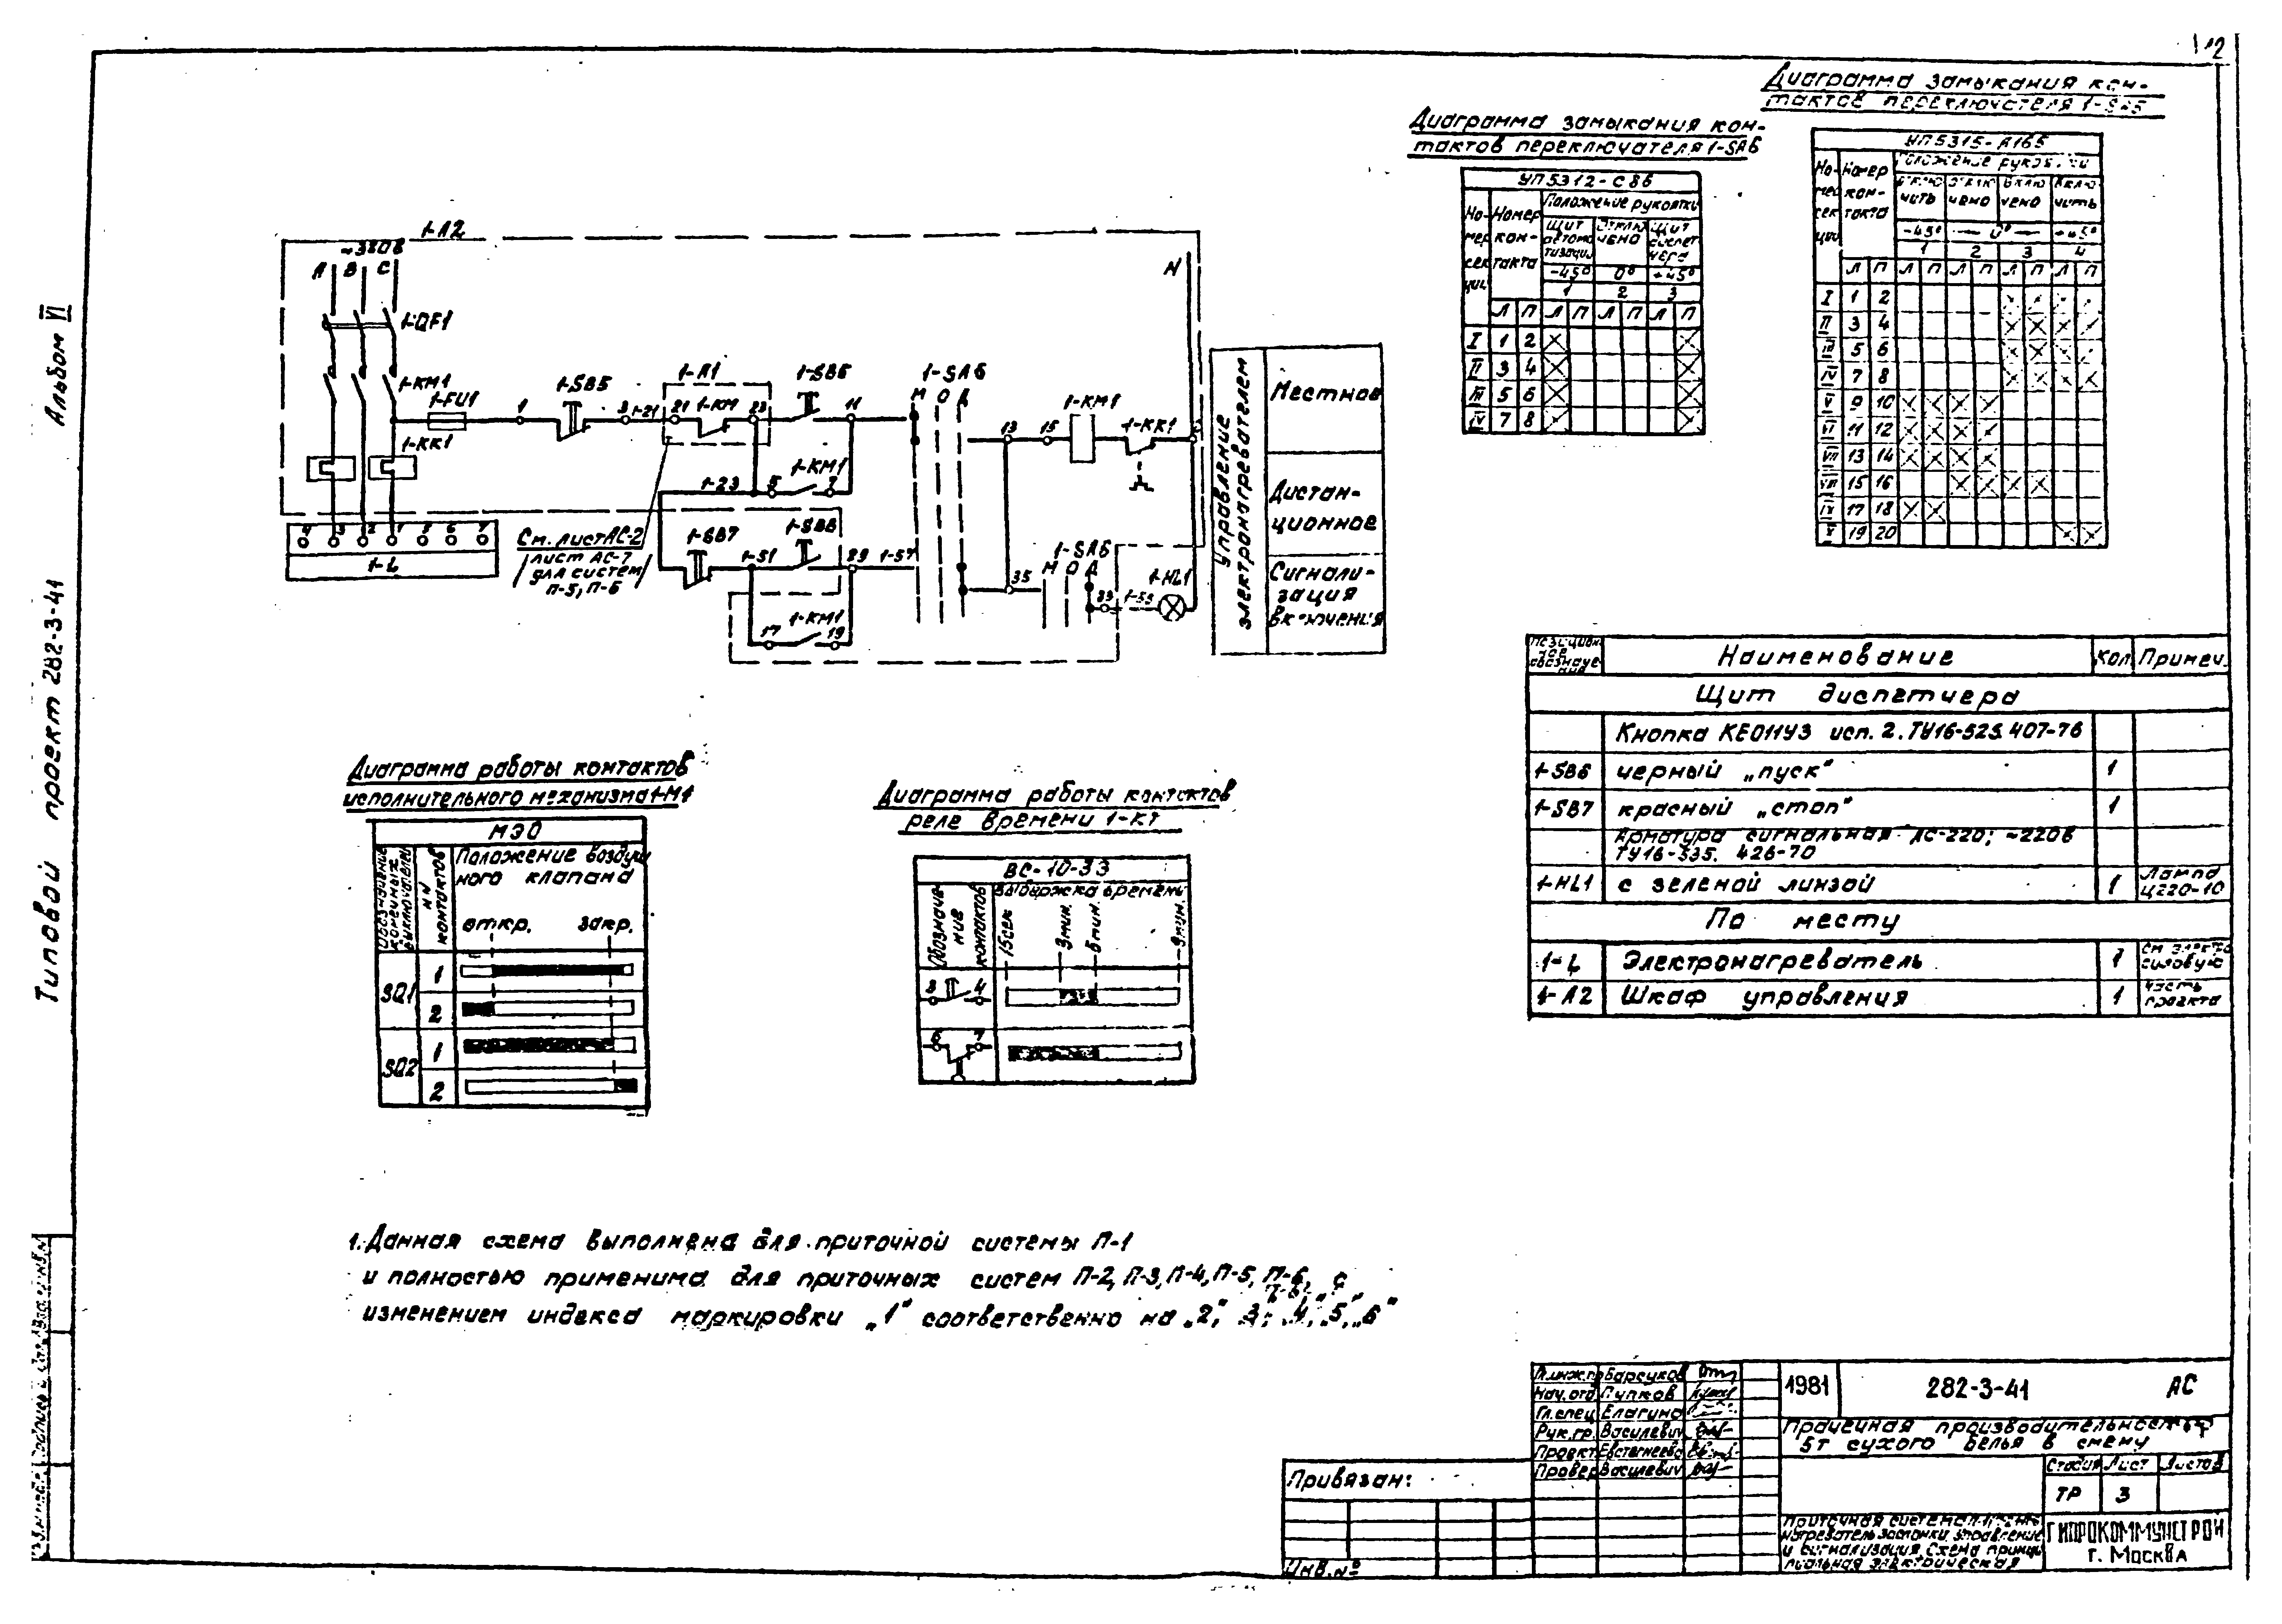 12
Альбом VI
Типовой проект 282-3-41
Диаграмма замыкания кон-
тактов переключателя 1-SA6
УП5312-С86
Но-
мер
сек
ции
Номер
кон-
такта
Положение рукоятки
Щит
автома
тизации
Отклю
чено
Щит
диспет
чера
-45° 0° +45°
1 2 3
Л П Л П Л П Л П
I 1 2
II 3 4
III 5 6
IV 7 8
Диаграмма замыкания кон-
тактов переключателя 1-SA5
УП5315-А165
Но-
мер
сек
ции
Номер
кон-
такта
Положение рукоятки
Отклю
чить
Отклю
чено
Вклю
чено
Вклю-
чить
-45° 0° +45°
1 2 3 4
Л П Л П Л П Л П Л П
I 1 2
II 3 4
III 5 6
IV 7 8
V 9 10
VI 11 12
VII 13 14
VIII 15 16
IX 17 18
X 19 20
1-A2
~380В
A B C
N
1-QF1
1-KM1
1-FU1
1-KK1
1
1-SB5
3
1-21
1-A1
21
1-KM
23
1-SB6
11
1-SA6
М О Д
13
15
1-KM1
1-KK1
2
1-23
5
1-KM1
7
4 3 2 1 5 6 7
1-L
См. лист АС-2
лист АС-7
для систем
П-5, П-6
1-SB7
1-51
1-SB6
29
1-57
17
1-KM1
19
35
1-SA6
М О Д
33
1-53
1-HL1
Управление
электронагревателем
Местное
Дистан-
ционное
Сигнали-
зация
включения
Позицион
ное
обозначе
ние
Наименование
Кол.
Примеч.
Щит диспетчера
Кнопка КЕ011У3 исп. 2. ТУ16-523.407-76
1-SB6 черный „пуск" 1
1-SB7 красный „стоп" 1
Арматура сигнальная АС-220; ~220В
ТУ16-535. 426-70
1-HL1 с зеленой линзой 1 Лампа
Ц220-10
По месту
1-L Электронагреватель 1 См. электро
силовую
1-A2 Шкаф управления 1 часть
проекта
Диаграмма работы контактов
исполнительного механизма 1-М1
МЭО
Обозначение
конечных
выключателей
NN
контактов
Положение воздуш
ного клапана
откр. закр.
SQ1
1
2
SQ2
1
2
Диаграмма работы контактов
реле времени 1-КТ
ВС-10-33
Обозначе
ние
контактов
Выдержка времени
15сек
3мин.
6мин.
9мин.
3 4
6 7
1. Данная схема выполнена для приточной системы П-1
и полностью применима для приточных систем П-2, П-3, П-4, П-5, П-6, с
изменением индекса маркировки „1" соответственно на „2", 3", „4", „5", „6"
Гл.инж.пр Барсуков
Нач.отд Пупков
Гл.спец Елагина
Рук.гр. Василевич
Проект Евстегнеева
Провер Василевич
Привязан:
Инв.№
1981
282-3-41 АС
Прачечная производительностью
5т сухого белья в смену
Стадия Лист Листов
ТР 3
Приточная система
нагреватель заслонки. Управление
и сигнализация. Схема принци
пиальная электрическая
ГИПРОКОММУНСТРОЙ
г. Москва